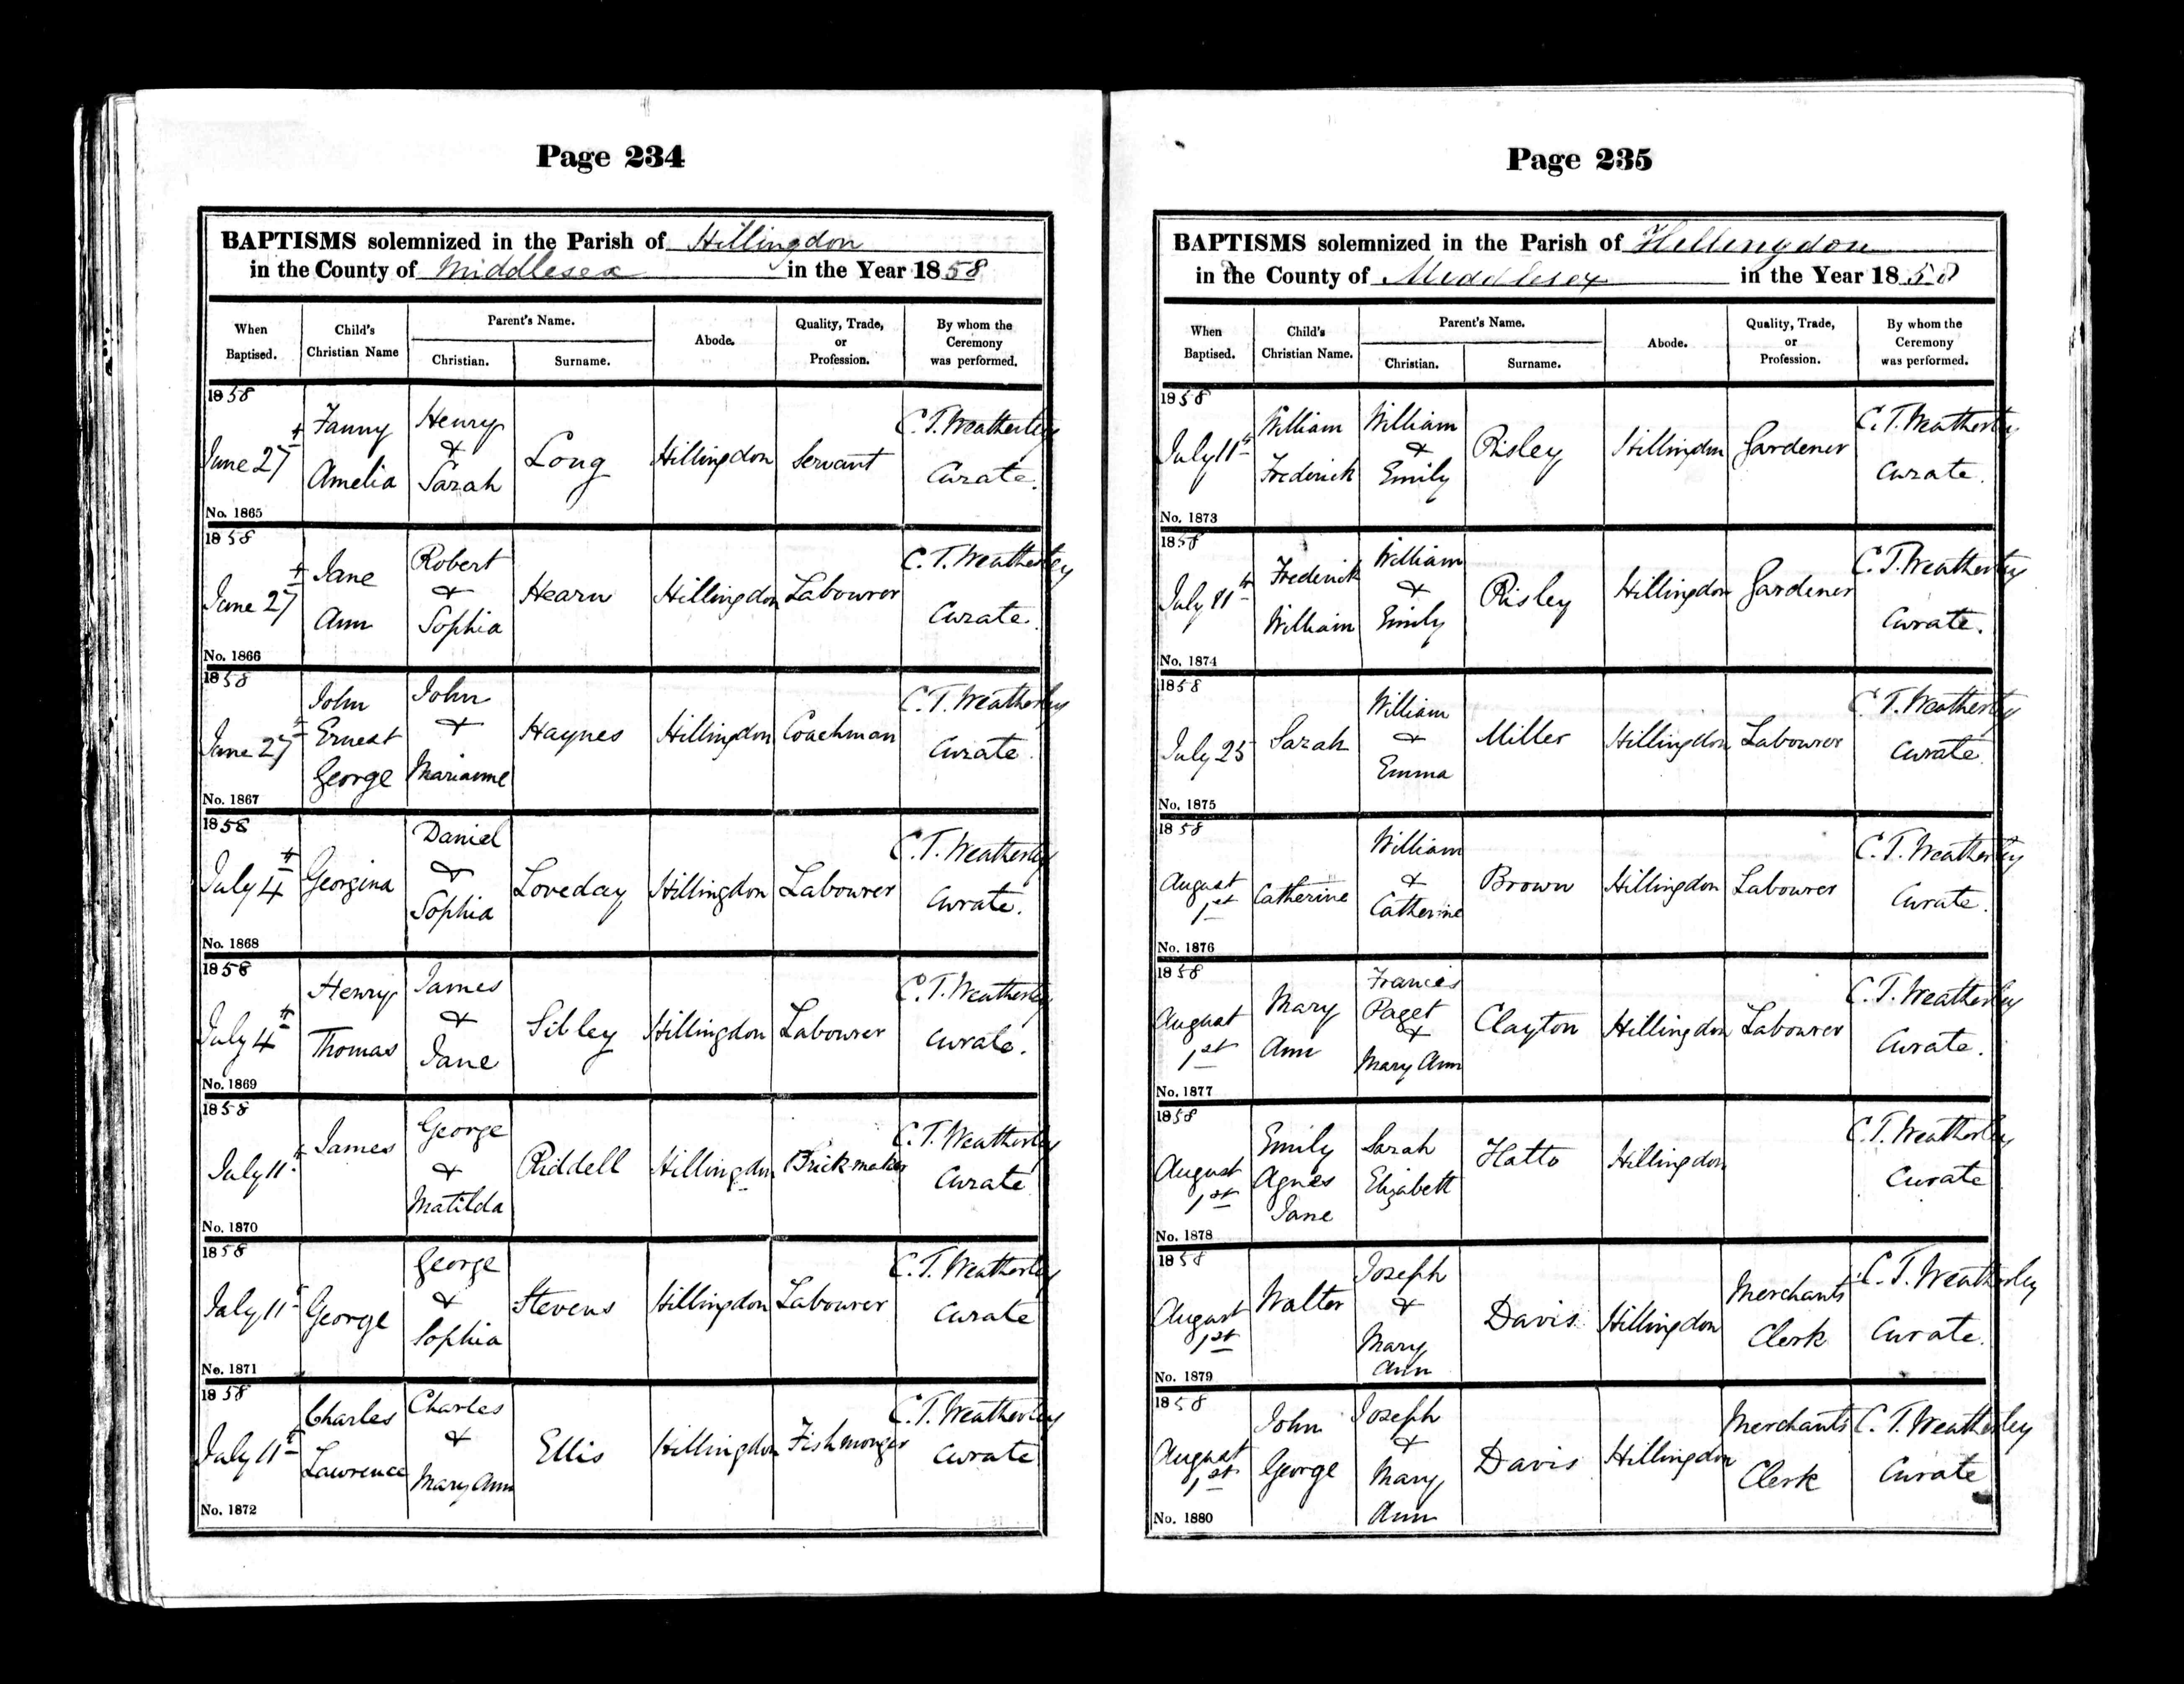 Page 234
BAPTISMS solemnized in the Parish of Hillingdon
in the County of Middlesex in the Year 1858
When Baptised. Child's Christian Name Parent's Name. Christian. Surname. Abode. Quality, Trade, or Profession. By whom the Ceremony was performed.
1858 June 27th Fanny Amelia Henry & Sarah Long Hillingdon Servant C. T. Weatherley Curate.
No. 1865
1858 June 27th Jane Ann Robert & Sophia Hearn Hillingdon Labourer C. T. Weatherley Curate.
No. 1866
1858 June 27th John Ernest George John & Marianne Haynes Hillingdon Coachman C. T. Weatherley Curate.
No. 1867
1858 July 4th Georgina Daniel & Sophia Loveday Hillingdon Labourer C. T. Weatherley Curate.
No. 1868
1858 July 4th Henry Thomas James & Jane Sibley Hillingdon Labourer C. T. Weatherley Curate.
No. 1869
1858 July 11th James George & Matilda Riddell Hillingdon Brickmaker C. T. Weatherley Curate
No. 1870
1858 July 11th George George & Sophia Stevens Hillingdon Labourer C. T. Weatherley Curate
No. 1871
1858 July 11th Charles Lawrence Charles & Mary Ann Ellis Hillingdon Fishmonger C. T. Weatherley Curate
No. 1872
Page 235
BAPTISMS solemnized in the Parish of Hillingdon
in the County of Middlesex in the Year 1858
When Baptised. Child's Christian Name. Parent's Name. Christian. Surname. Abode. Quality, Trade, or Profession. By whom the Ceremony was performed.
1858 July 11th William Frederick William & Emily Risley Hillingdon Gardener C. T. Weatherley Curate.
No. 1873
1858 July 11th Frederick William William & Emily Risley Hillingdon Gardener C. T. Weatherley Curate.
No. 1874
1858 July 25 Sarah William & Emma Miller Hillingdon Labourer C. T. Weatherley Curate.
No. 1875
1858 August 1st Catherine William & Catherine Brown Hillingdon Labourer C. T. Weatherley Curate.
No. 1876
1858 August 1st Mary Ann Francis Paget & Mary Ann Clayton Hillingdon Labourer C. T. Weatherley Curate.
No. 1877
1858 August 1st Emily Agnes Jane Sarah Elizabeth Hatto Hillingdon C. T. Weatherley Curate
No. 1878
1858 August 1st Walter Joseph & Mary Ann Davis Hillingdon Merchants Clerk C. T. Weatherley Curate.
No. 1879
1858 August 1st John George Joseph & Mary Ann Davis Hillingdon Merchants Clerk C. T. Weatherley Curate
No. 1880